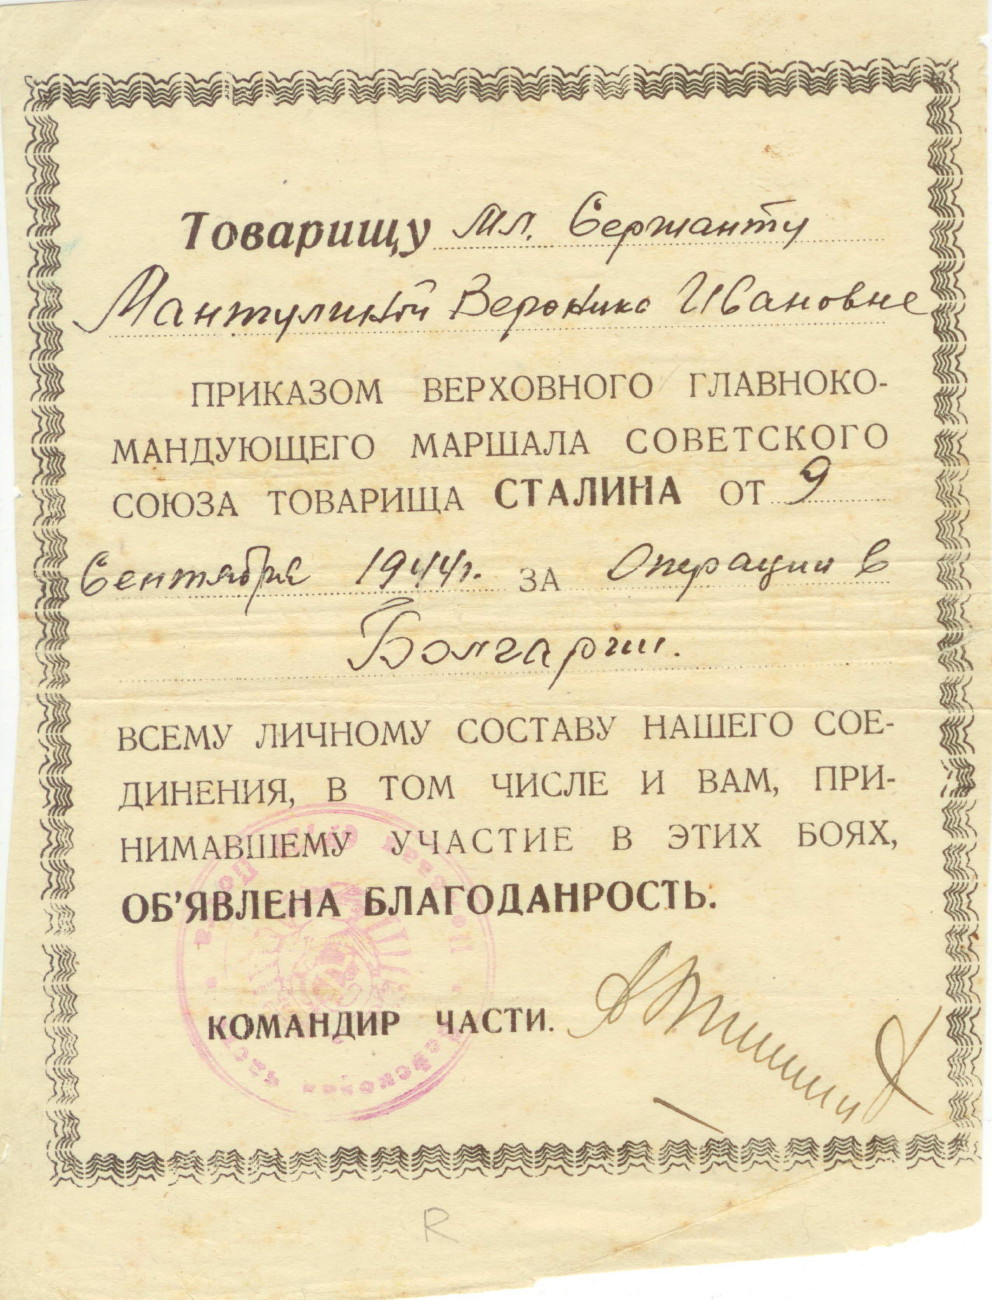 Товарищу мл. Сержанту
Мантулиной Веронике Ивановне
ПРИКАЗОМ ВЕРХОВНОГО ГЛАВНОКО-
МАНДУЮЩЕГО МАРШАЛА СОВЕТСКОГО
СОЮЗА ТОВАРИЩА СТАЛИНА ОТ 9
Сентября 1944г. ЗА Операции в
Болгарии.
ВСЕМУ ЛИЧНОМУ СОСТАВУ НАШЕГО СОЕ-
ДИНЕНИЯ, В ТОМ ЧИСЛЕ И ВАМ, ПРИ-
НИМАВШЕМУ УЧАСТИЕ В ЭТИХ БОЯХ,
ОБ'ЯВЛЕНА БЛАГОДАНРОСТЬ.
КОМАНДИР ЧАСТИ.
R